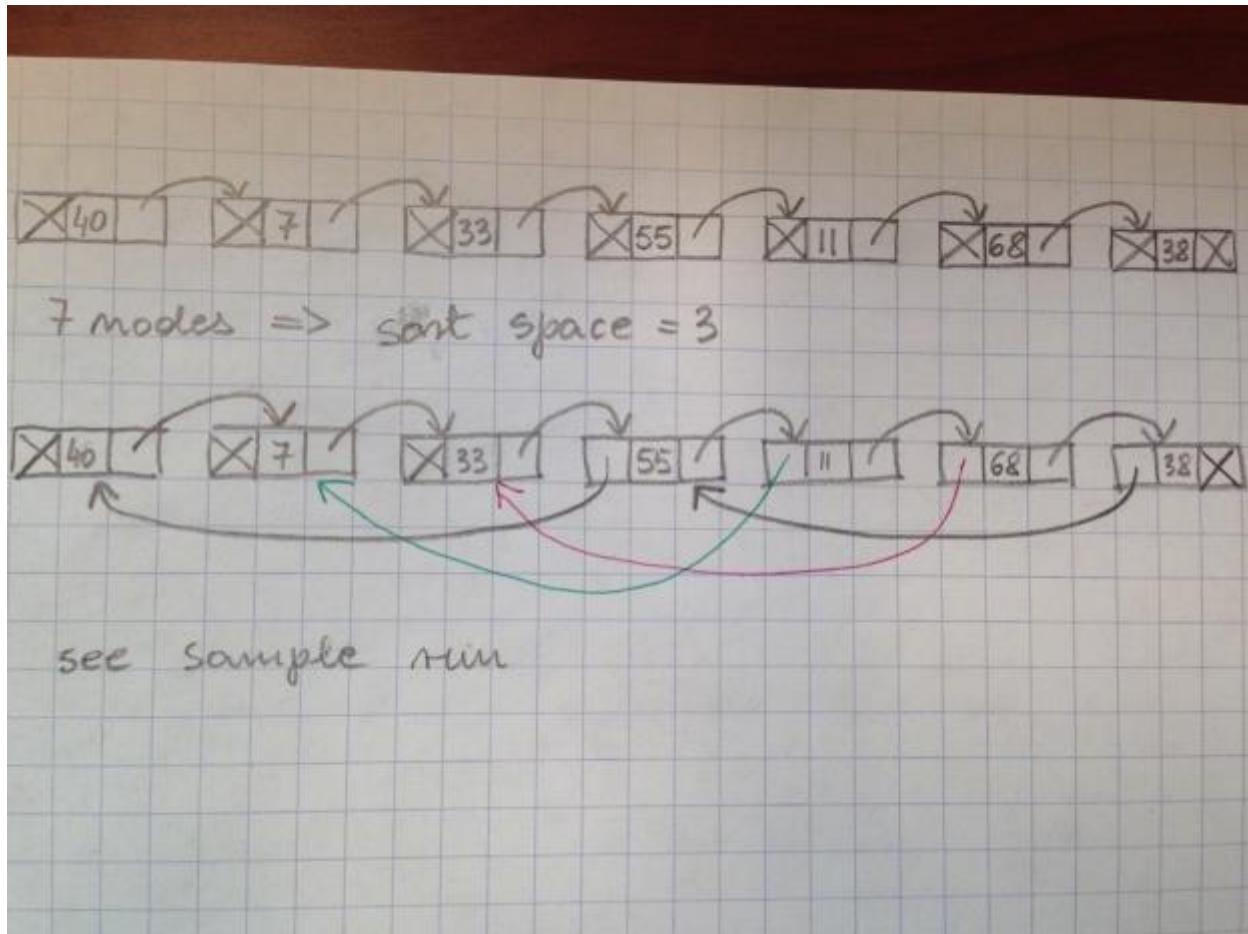 40 7 33 55 11 68 38
7 nodes => sort space = 3
40 7 33 55 11 68 38
see sample run